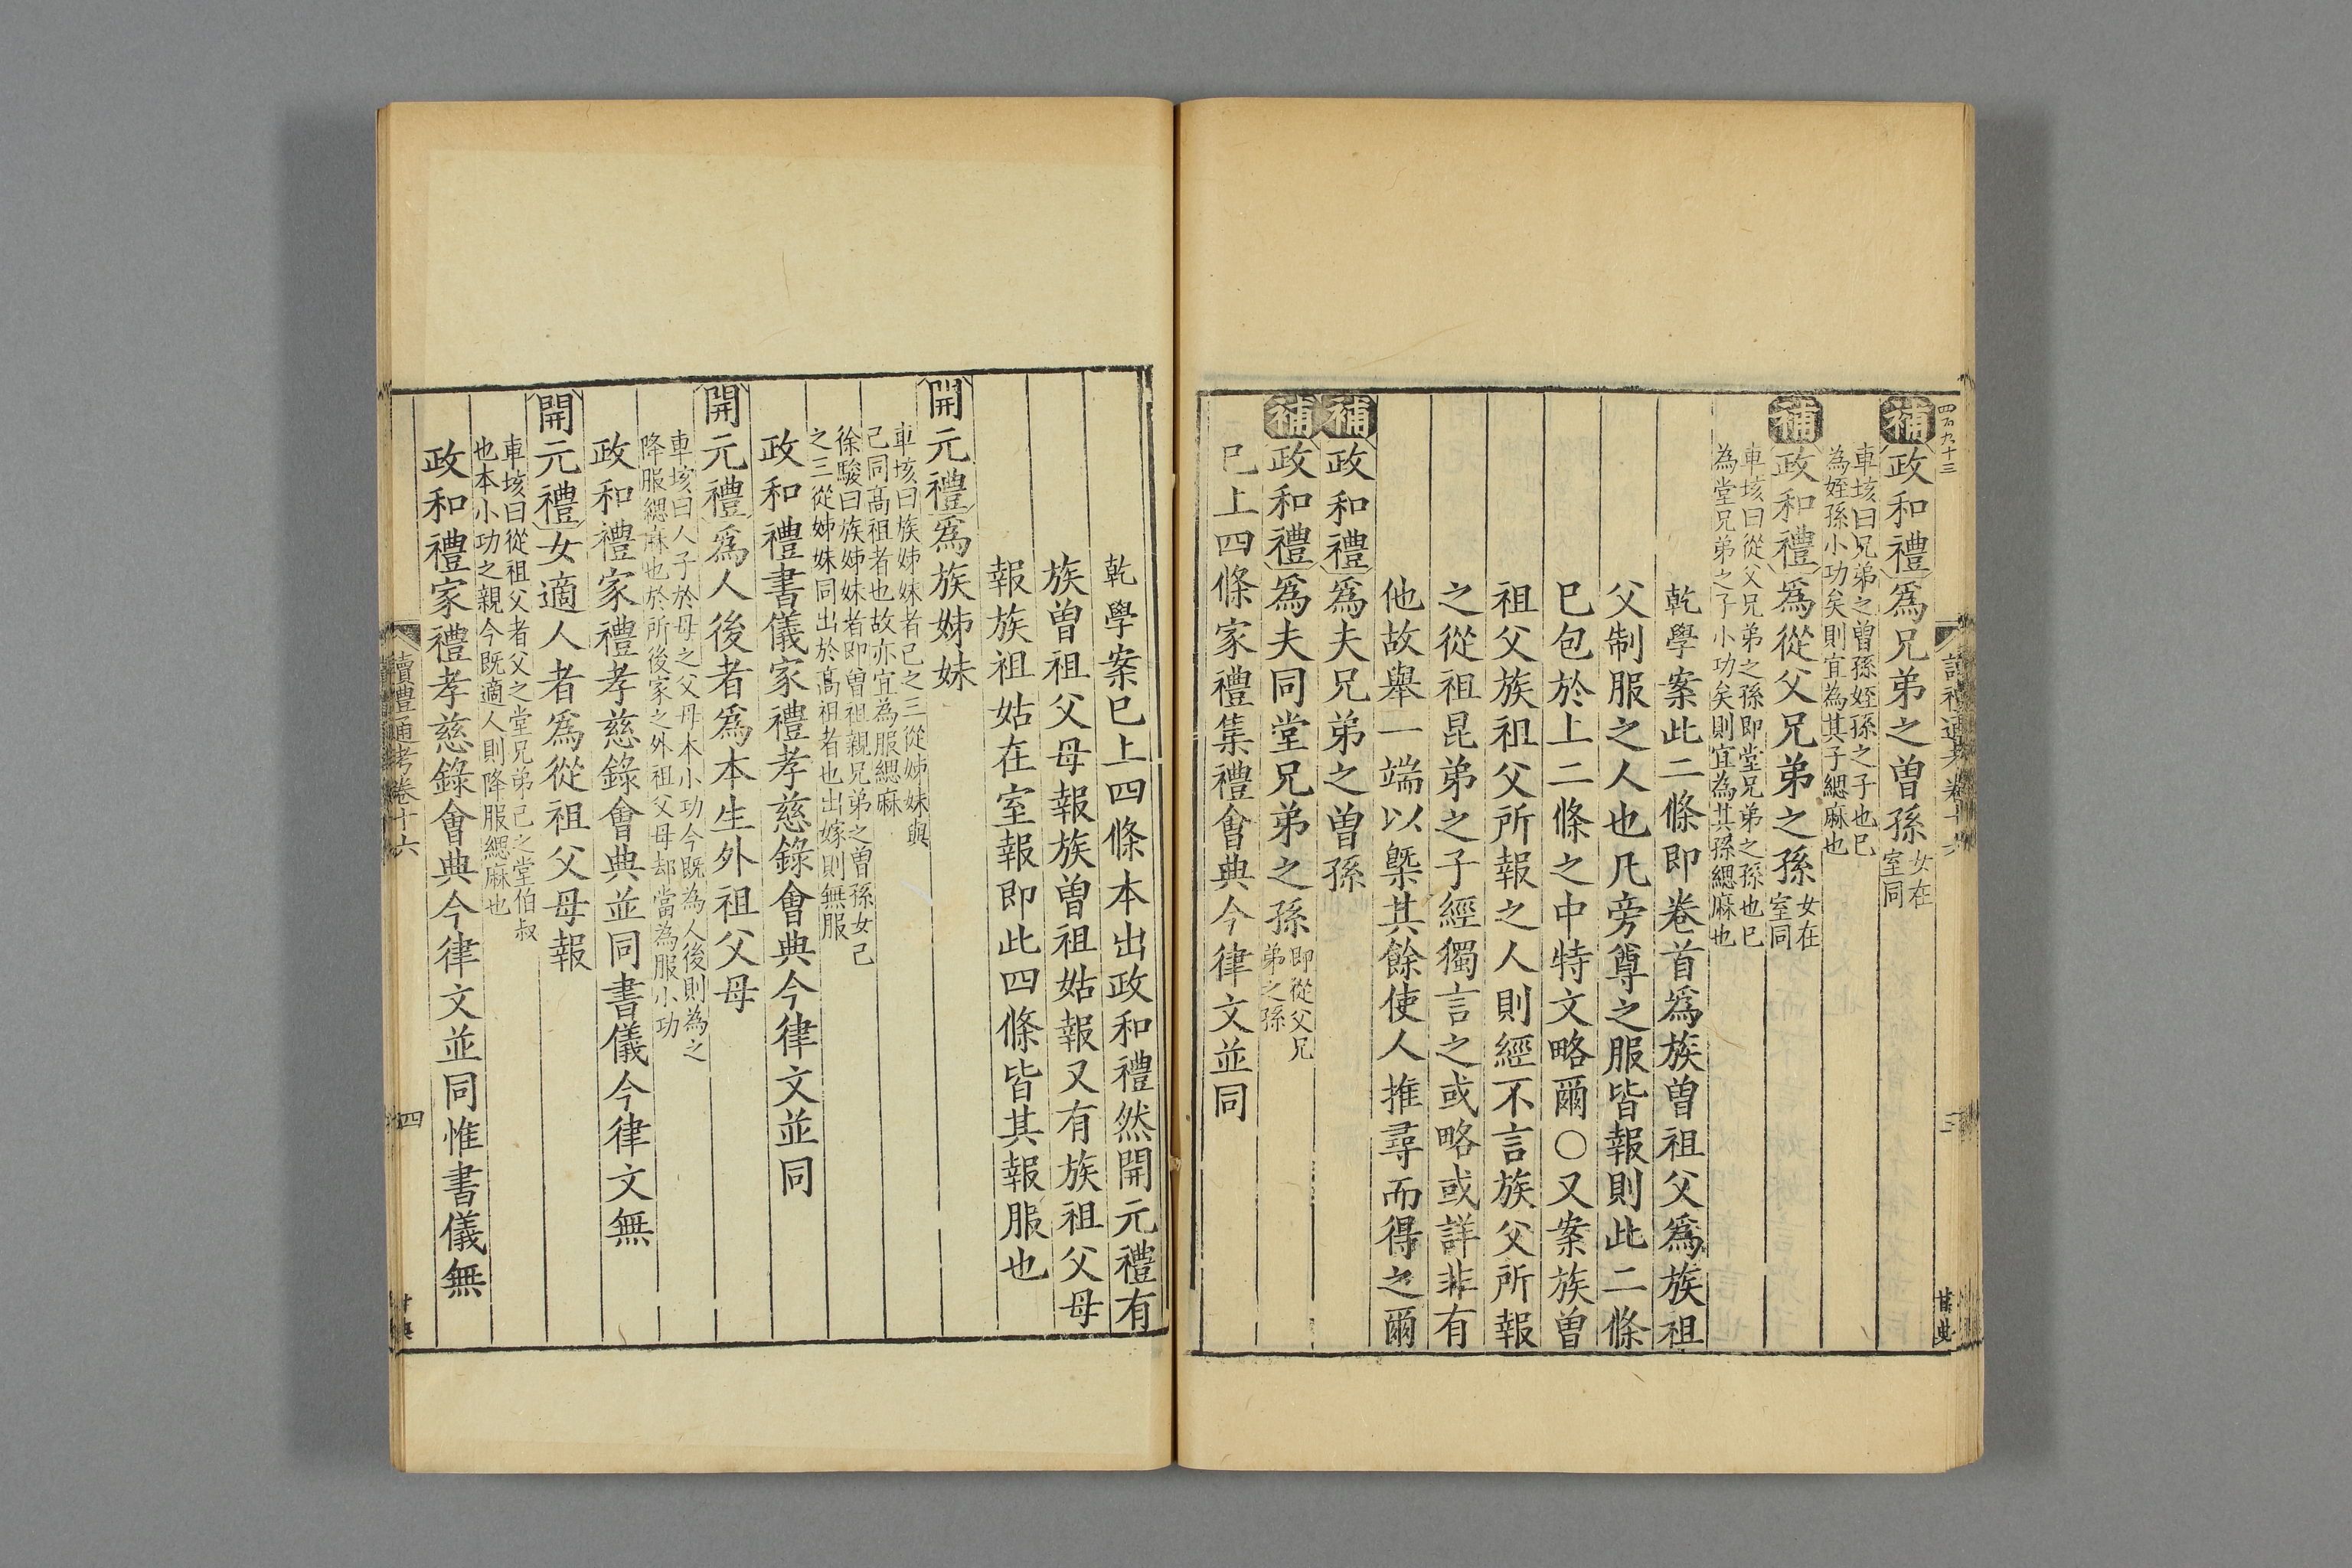 四百九十三
補政和禮爲兄弟之曽孫女在室同
車垓曰兄弟之曽孫姪孫之子也已
為姪孫小功矣則宜為其子緦麻也
補政和禮爲從父兄弟之孫女在室同
車垓曰從父兄弟之孫即堂兄弟之孫也已
為堂兄弟之子小功矣則宜為其孫緦麻也
乾學案此二條即卷首爲族曽祖父爲族祖
父制服之人也凡旁尊之服皆報則此二條
已包於上二條之中特文略爾○又案族曽
祖父族祖父所報之人則經不言族父所報
之從祖昆弟之子經獨言之或略或詳非有
他故舉一端以槩其餘使人推尋而得之爾
補政和禮爲夫兄弟之曽孫
補政和禮爲夫同堂兄弟之孫即從父兄弟之孫
已上四條家禮集禮會典今律文並同
乾學案已上四條本出政和禮然開元禮有
族曽祖父母報族曽祖姑報又有族祖父母
報族祖姑在室報即此四條皆其報服也
開元禮爲族姊妹
車垓曰族姊妹者已之三從姊妹與
己同高祖者也故亦宜為服緦麻
徐駿曰族姊妹者即曽祖親兄弟之曽孫女己
之三從姊妹同出於高祖者也出嫁則無服
政和禮書儀家禮孝慈錄會典今律文並同
開元禮爲人後者爲本生外祖父母
車垓曰人子於母之父母本小功今既為人後則為之
降服緦麻也於所後家之外祖父母却當為服小功
政和禮家禮孝慈錄會典並同書儀今律文無
開元禮女適人者爲從祖父母報
車垓曰從祖父者父之堂兄弟己之堂伯叔
也本小功之親今既適人則降服緦麻也
政和禮家禮孝慈錄會典今律文並同惟書儀無
讀禮通考卷十六
四